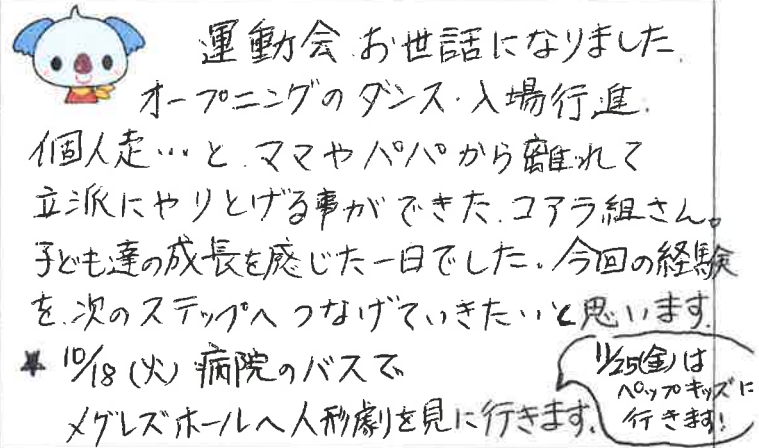 運動会、お世話になりました。
オープニングのダンス・入場行進、
個人走…と、ママやパパから離れて
立派にやりとげる事ができた、コアラ組さん。
子ども達の成長を感じた一日でした。今回の経験
を、次のステップへつなげていきたいと思います。
★10/18(火)病院のバスで
メグレズホールへ人形劇を見に行きます。
11/25(金)は
ペップキッズに
行きます!